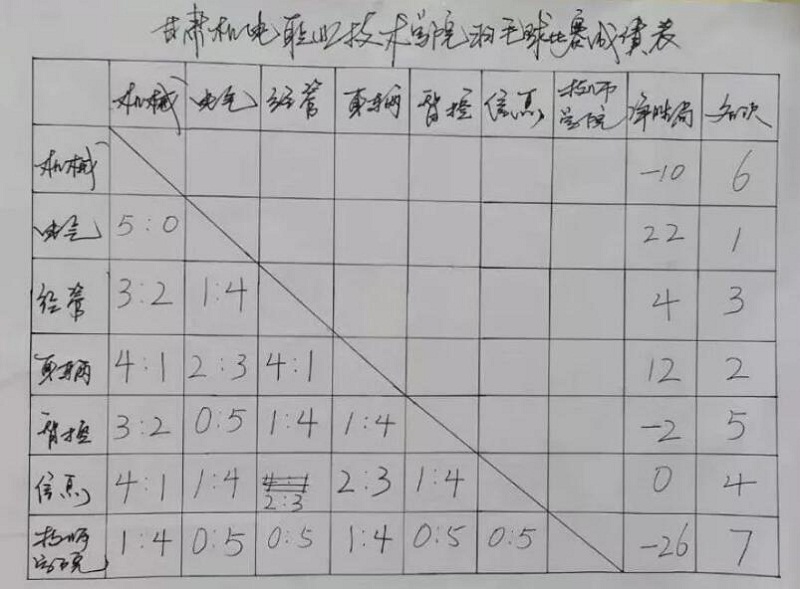 甘肃机电职业技术学院羽毛球比赛成绩表
机械 电气 经管 车辆 智控 信息 技师学院 净胜局 名次
机械 -10 6
电气 5:0 22 1
经管 3:2 1:4 4 3
车辆 4:1 2:3 4:1 12 2
智控 3:2 0:5 1:4 1:4 -2 5
信息 4:1 1:4 2:3 2:3 1:4 0 4
技师学院 1:4 0:5 0:5 1:4 0:5 0:5 -26 7